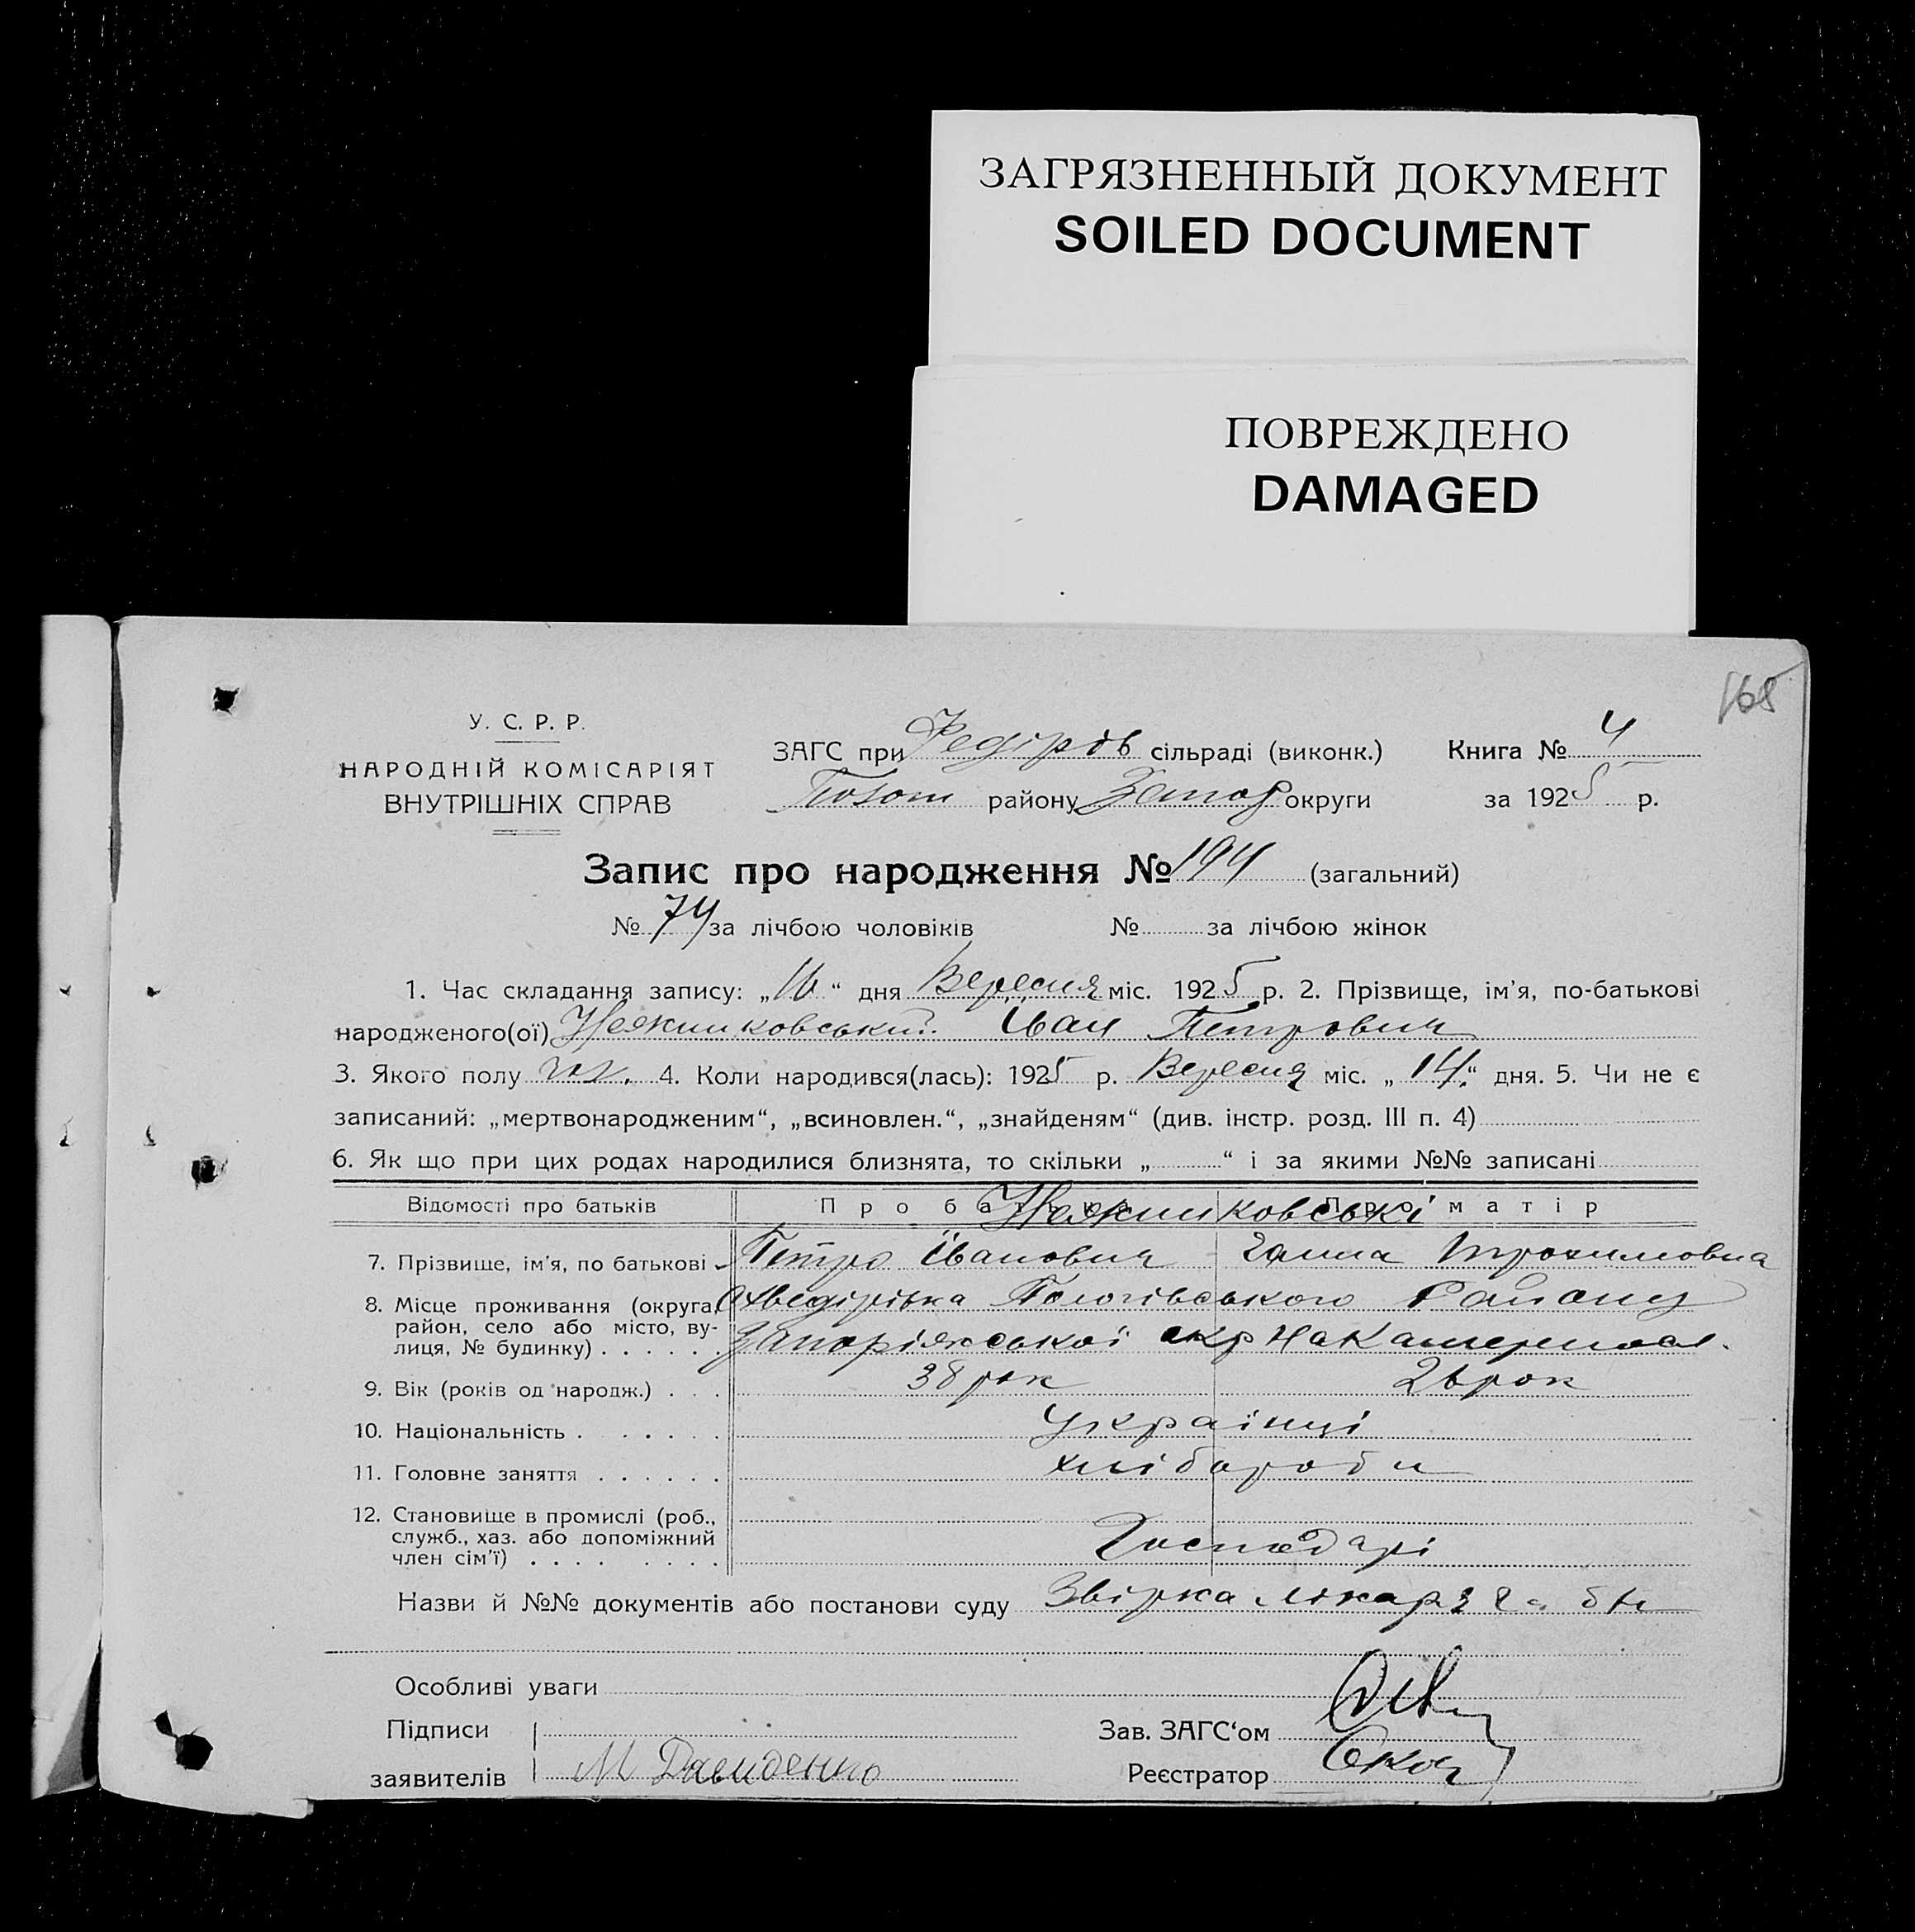 ЗАГРЯЗНЕННЫЙ ДОКУМЕНТ
SOILED DOCUMENT
ПОВРЕЖДЕНО
DAMAGED
168
У. С. Р. Р.
НАРОДНІЙ КОМІСАРІЯТ
ВНУТРІШНІХ СПРАВ
ЗАГС при Федірів сільраді (виконк.) Книга № 4
району Запор округи за 1925 р.
Запис про народження № 194 (загальний)
№ 74 за лічбою чоловіків № за лічбою жінок
1. Час складання запису: „16“ дня Вересня міс. 1925 р. 2. Прізвище, ім'я, по-батькові
народженого(ої) Іван Петрович
3. Якого полу чол. 4. Коли народився(лась): 1925 р. Вересня міс. „14“ дня. 5. Чи не є
записаний: „мертвонародженим“, „всиновлен.“, „знайденям“ (див. інстр. розд. III п. 4)
6. Як що при цих родах народилися близнята, то скільки „ “ і за якими №№ записані
Відомості про батьків Про батька Про матір
7. Прізвище, ім'я, по батькові Петро Іванович Ганна Трохимовна
8. Місце проживання (округа, Хведірівка Пологівського Району
район, село або місто, ву-
лиця, № будинку) Запоріжської окр на Катериносл.
9. Вік (років од народж.) 38 рок 26 рок
10. Національність українці
11. Головне заняття хлібороби
12. Становище в промислі (роб.,
служб., хаз. або допоміжний
член сім'ї) Господарі
Назви й №№ документів або постанови суду Звірка лікаря
Особливі уваги
Підписи Зав. ЗАГС'ом
заявителів М Давиденко Реєстратор